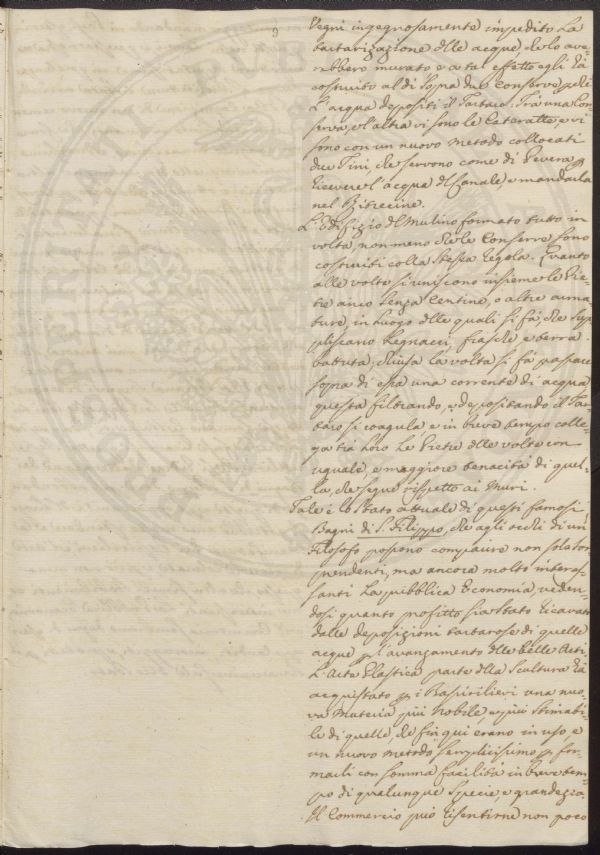 9
Vegni ingegnosamente impedito la
tartarizazione dlle acque
rebbero murato e a tal effetto egli ha
costruito al di sopra due Conserve
L'acqua depositi il Tartaro. Tra una Con-
serva, e l'altra vi sono le Cateratte, e vi
sono con un nuovo metodo collocati
due Tini, che servono come di Pevera p
ricevere l'acqua dl Canale, e mandarla
nel Bitrecine.
L'Edifizio dl Mulino formato tutto in
volta, non meno che le Conserve sono
costruiti colla stessa regola. Quanto
alle volte si uniscono insieme le Pie-
tre anco senza Centine, o altre arma-
ture, in luogo dlle quali si fà, che sup-
pliscano Legnacci, frasche e terra
battuta; chiusa la volta si fà passare
sopra di essa una corrente di acqua
questa filtrando, e depositando il Tar-
taro si coagula e in breve tempo colle-
ga tra loro le Pietre dlle volte con
uguale, e maggiore tenacità di quel-
la, che segue rispetto ai Muri.
Tale è lo stato attuale di questi famosi
Bagni di S. Filippo, che agli occhi di un
Filosofo possono comparire non solo sor-
prendenti, ma ancora molto interes-
santi la pubblica Economia, veden-
dosi quanto profitto sia stato ricavato
dalle deposizioni tartarose di quelle
acque p l'avanzamento dlle belle Arti.
L'Arte Plastica parte dlla Scultura ha
acquistato p i Bassirilievi una nuo-
va Materia più nobile, e più stimabi-
le di quelle, che fin qui erano in uso, e
un nuovo metodo semplicissimo p for-
marli con somma facilità in breve tem-
po di qualunque specie, e grandezza.
Il Commercio può risentirne non poco